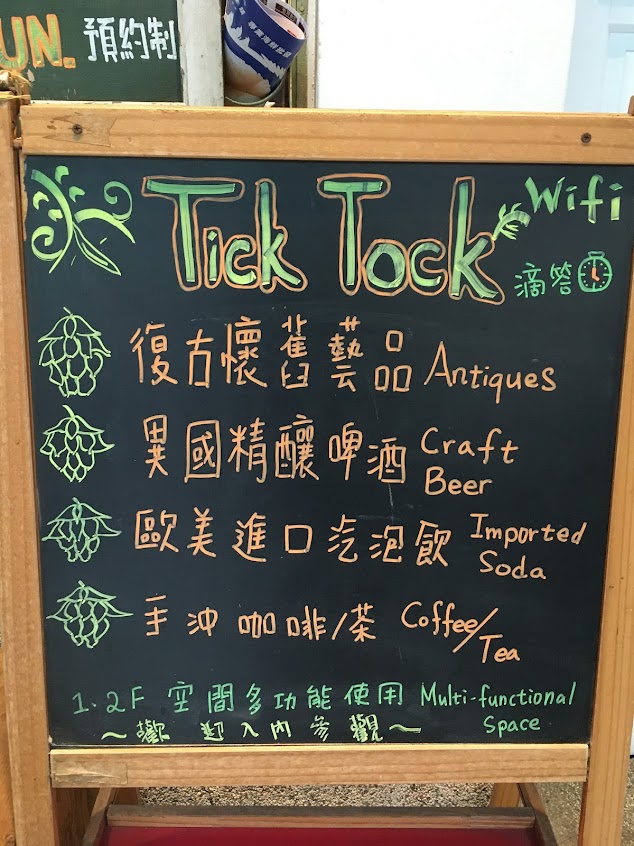 UN. 預約制
Tick Tock Wifi
滴答
復古懷舊藝品 Antiques
異國精釀啤酒 Craft
Beer
歐美進口汽泡飲 Imported
Soda
手沖咖啡/茶 Coffee/
Tea
1.2F 空間多功能使用 Multi-functional
Space
~歡迎入內參觀~